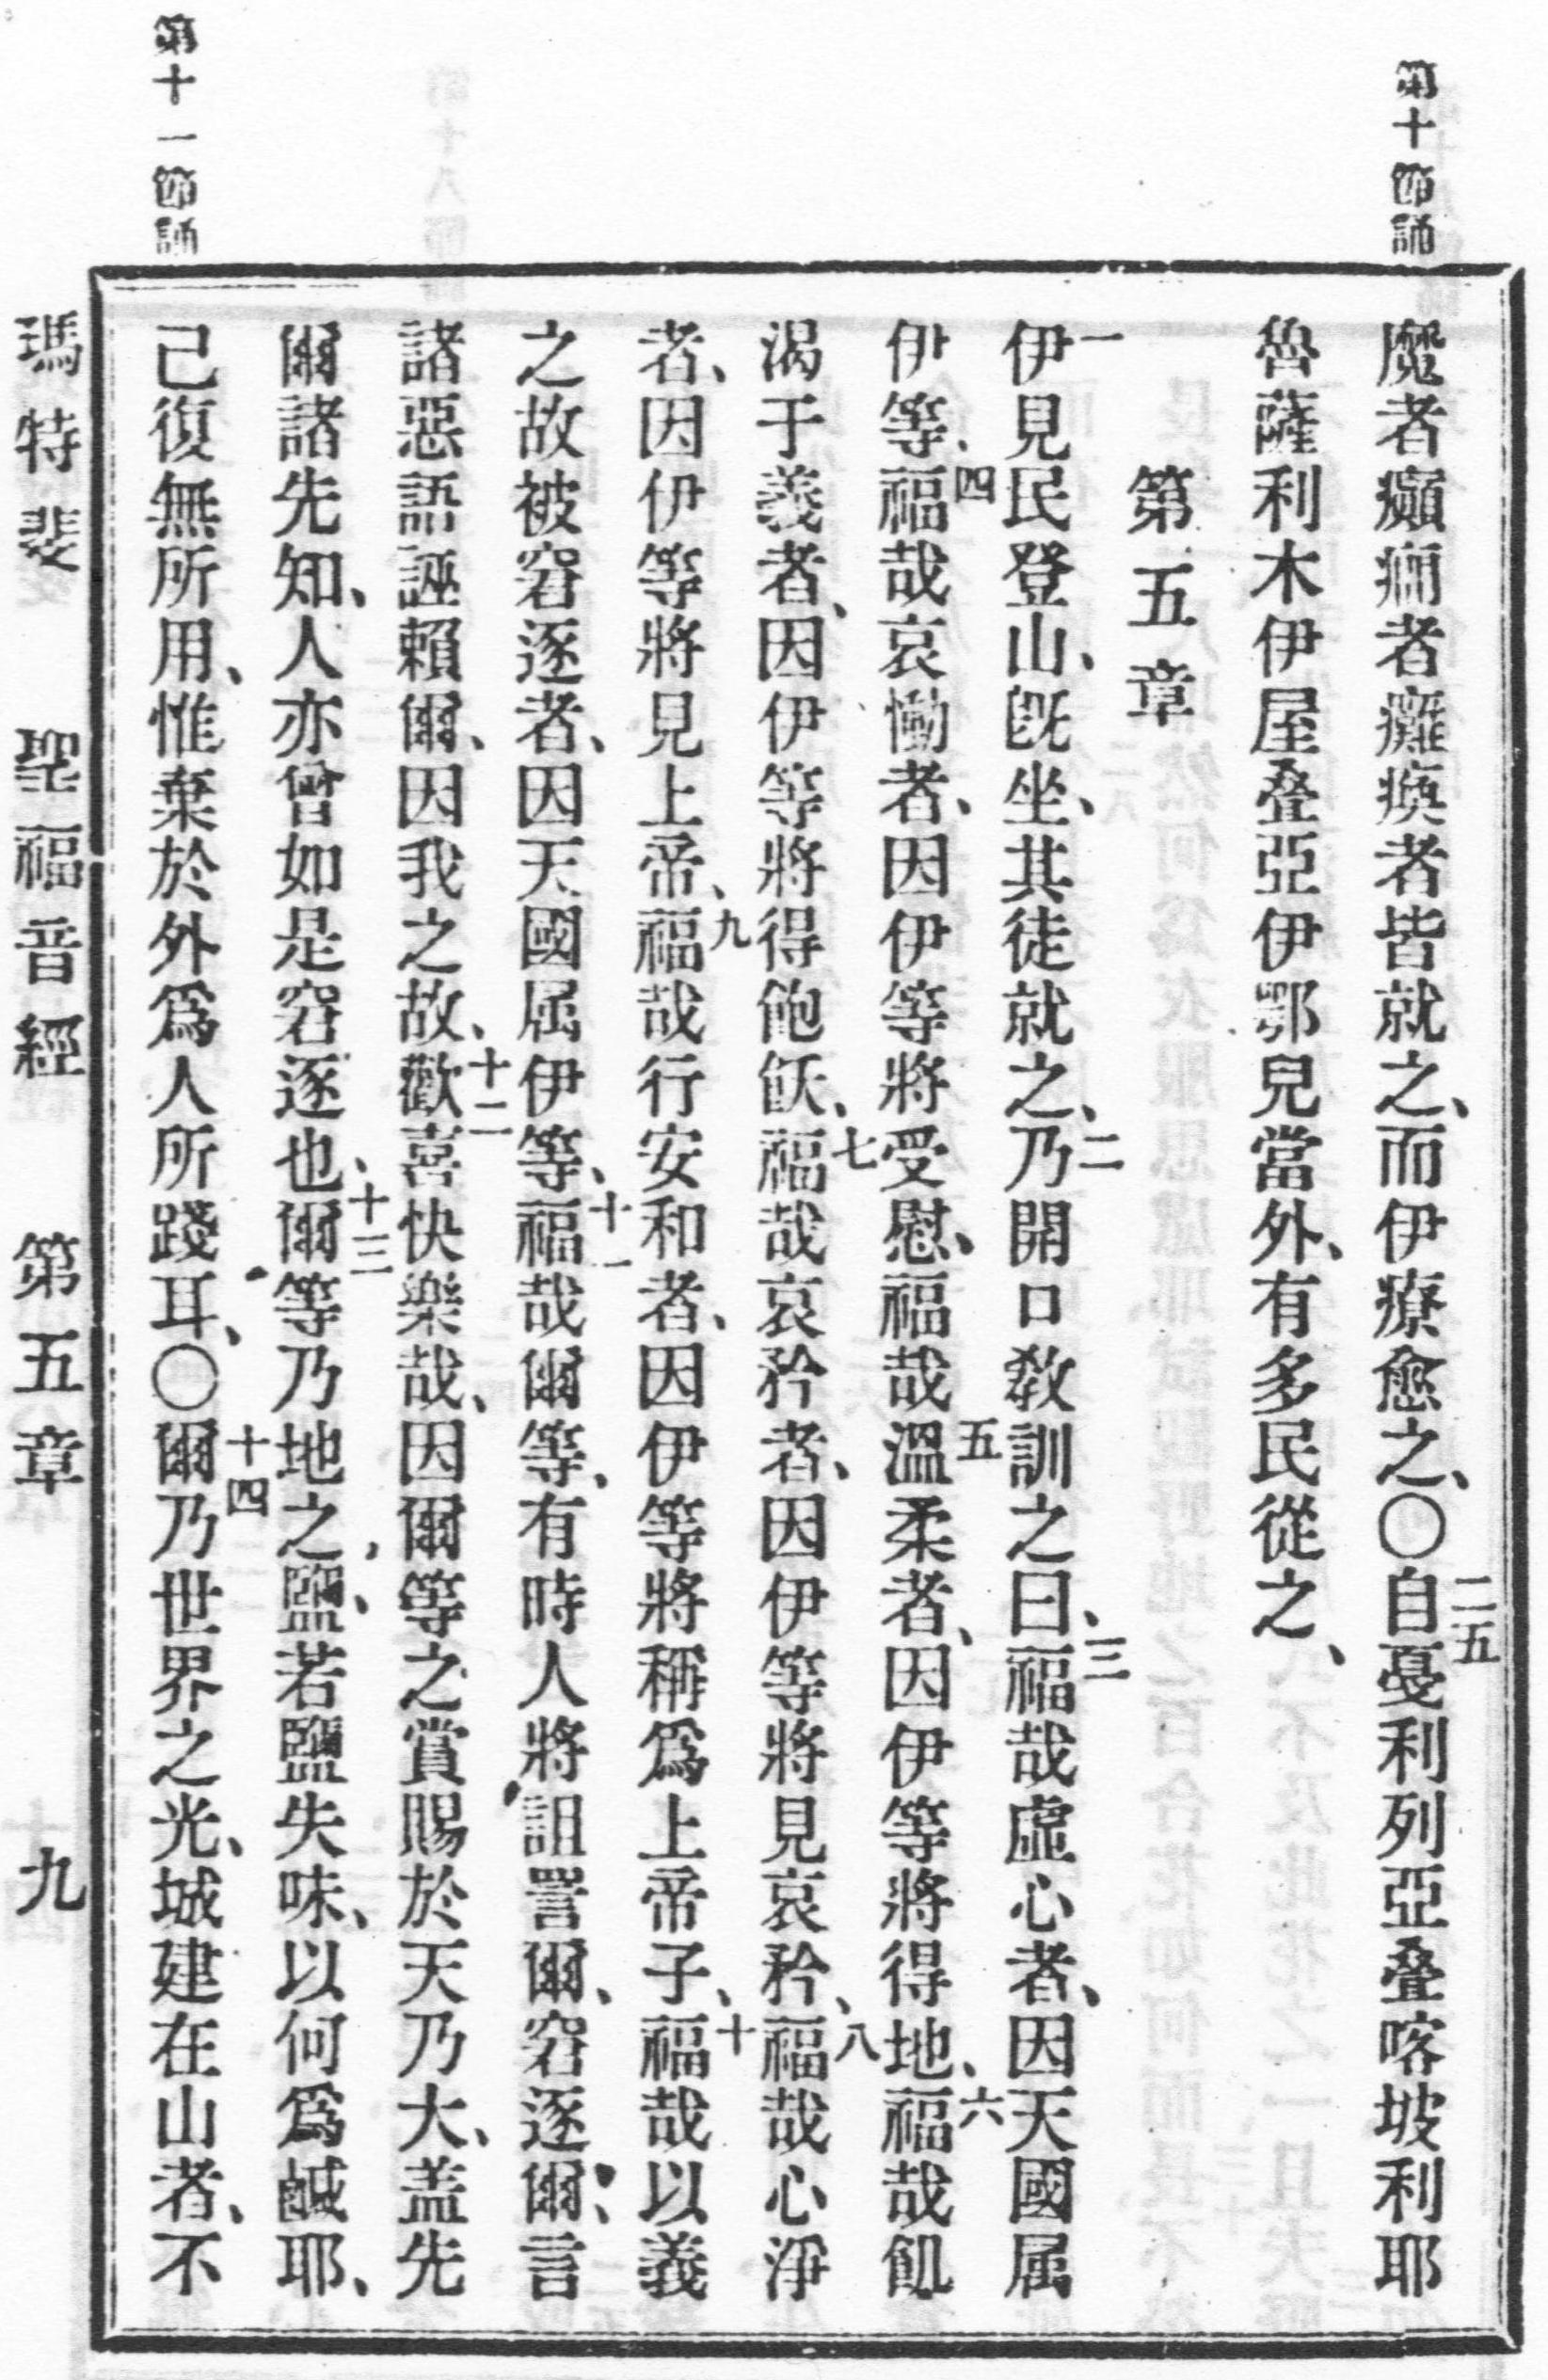 第十節誦
魔者癲癇者癱瘓者皆就之、而伊療愈之、〇二五自戞利列亞疊喀坡利耶
魯薩利木伊屋疊亞伊鄂兒當外、有多民從之、
第五章
一伊見民登山、旣坐、其徒就之、二乃開口教訓之曰、三福哉虛心者、因天國属
伊等、四福哉哀慟者、因伊等將受慰、五福哉溫柔者、因伊等將得地、六福哉飢
渴于義者、因伊等將得飽飫、七福哉哀矜者、因伊等將見哀矜、八福哉心淨
者、因伊等將見上帝、九福哉行安和者、因伊等將稱爲上帝子、十福哉以義
之故被窘逐者、因天國属伊等、十一福哉爾等、有時人將詛詈爾、窘逐爾、言
諸惡語誣賴爾、因我之故、十二歡喜快樂哉、因爾等之賞賜於天乃大、盖先
爾諸先知、人亦曾如是窘逐也、十三爾等乃地之鹽、若鹽失味、以何爲鹹耶、
己復無所用、惟棄於外爲人所踐耳、〇十四爾乃世界之光、城建在山者、不
第十一節誦
瑪特斐 聖福音經 第五章 九